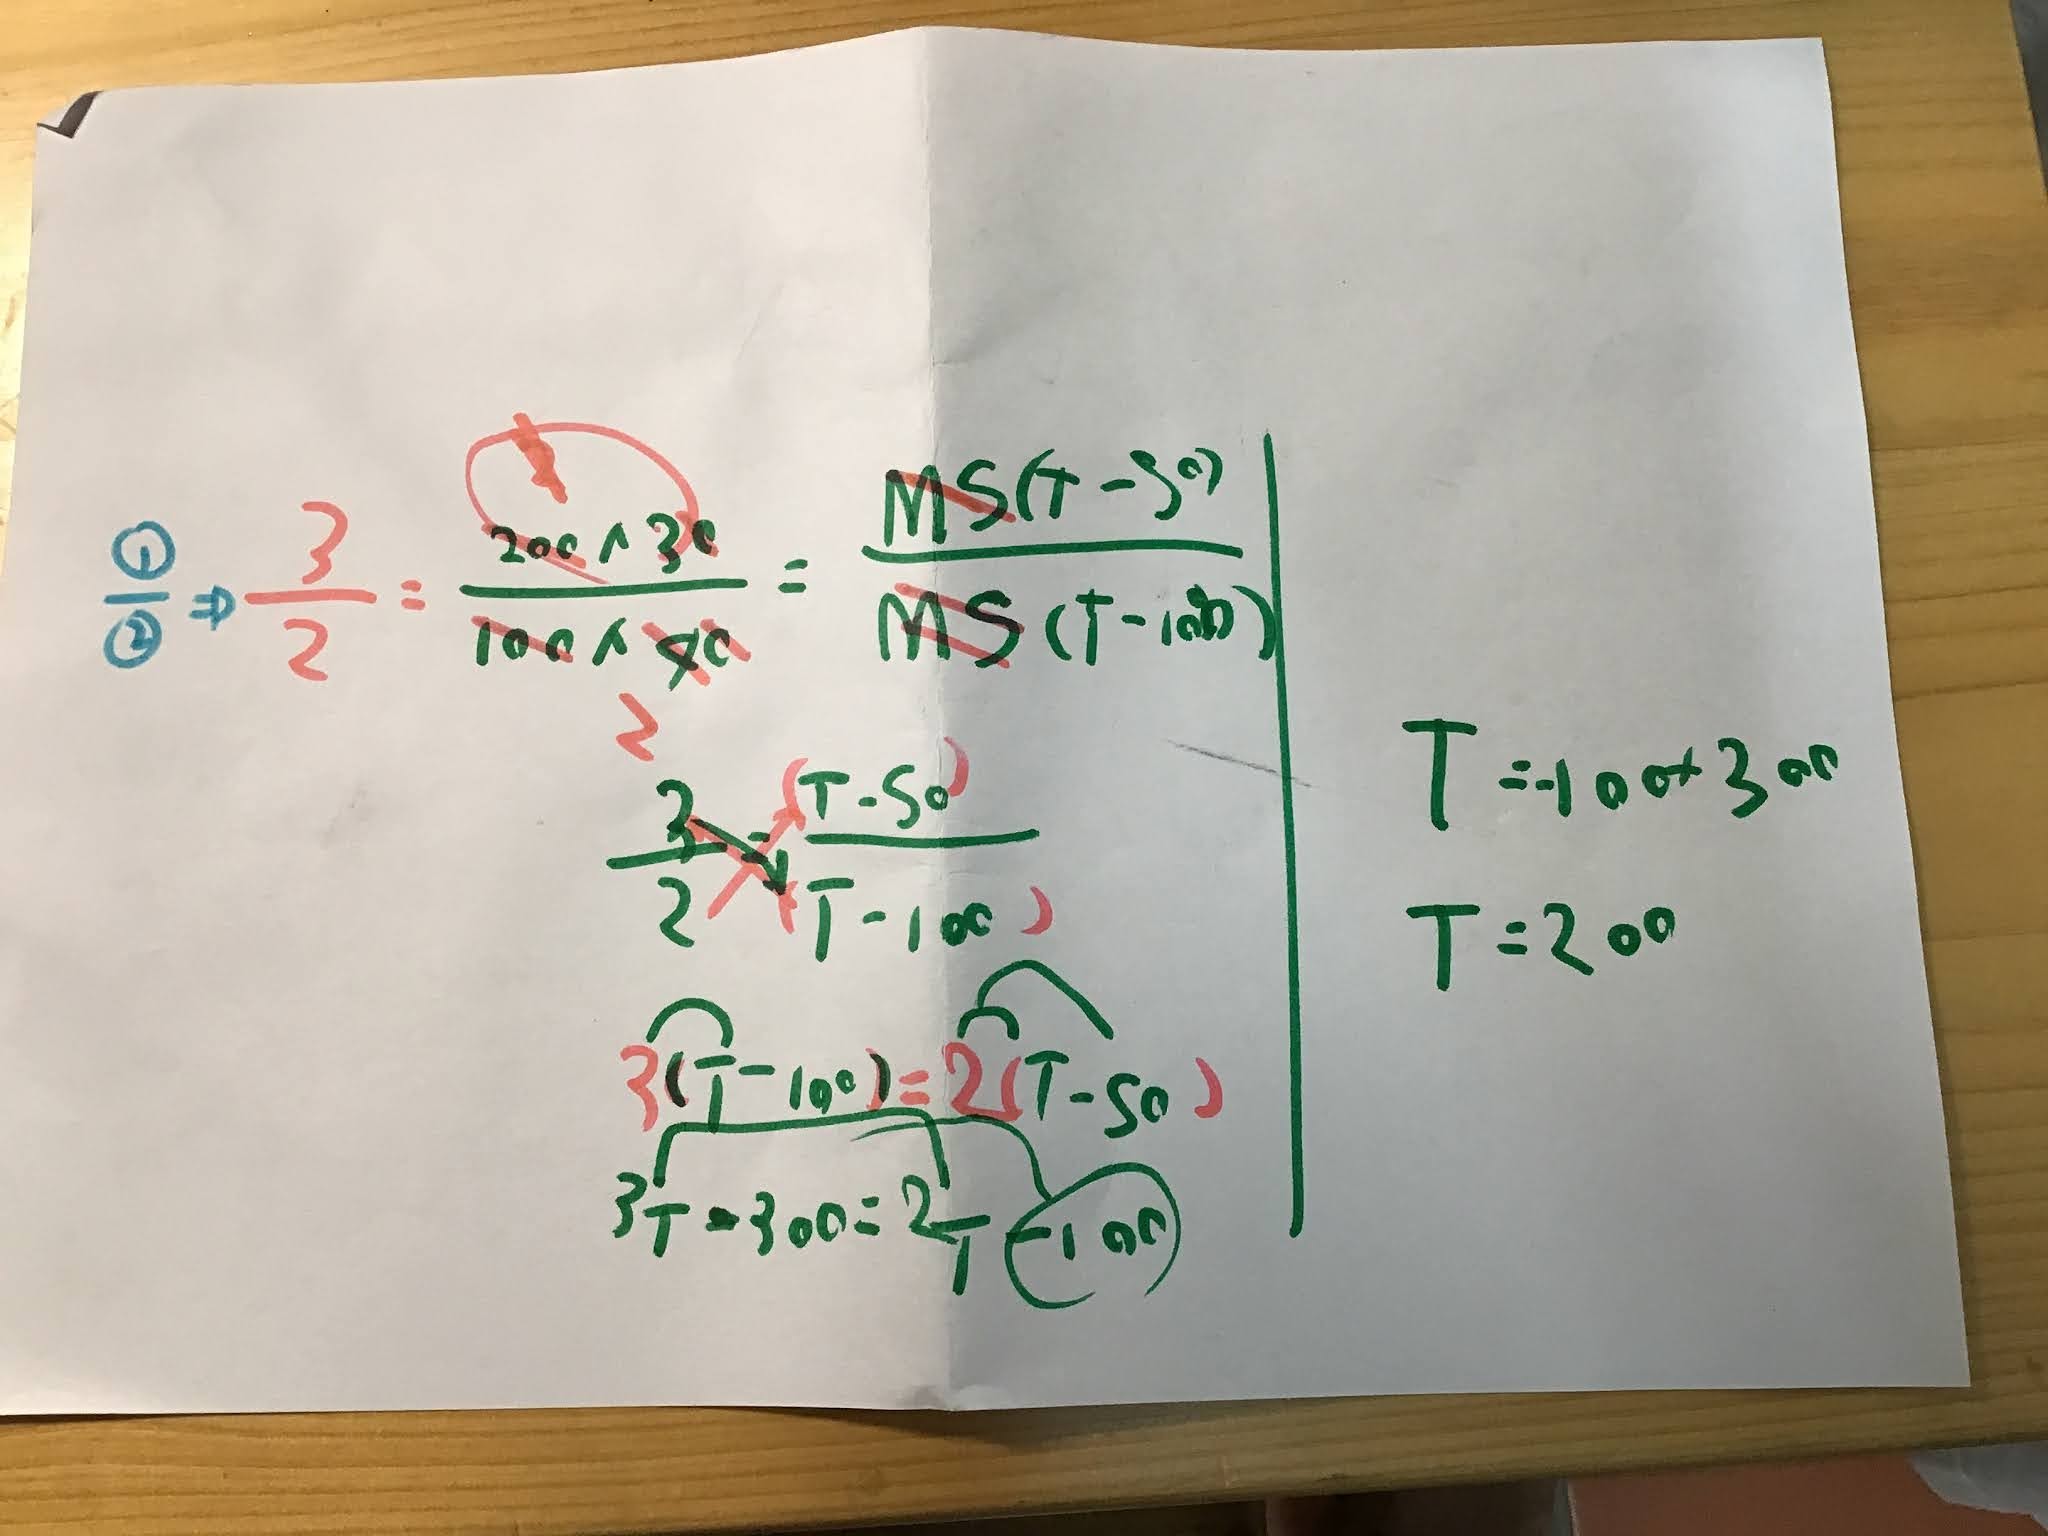 ①/② ⇒ 3/2 = 200 × 30 / 100 × 40 = MS(T - 50) / MS(T - 100)
2
3/2 = (T - 50) / (T - 100)
3(T - 100) = 2(T - 50)
3T - 300 = 2T - 100
T = -100 + 300
T = 200